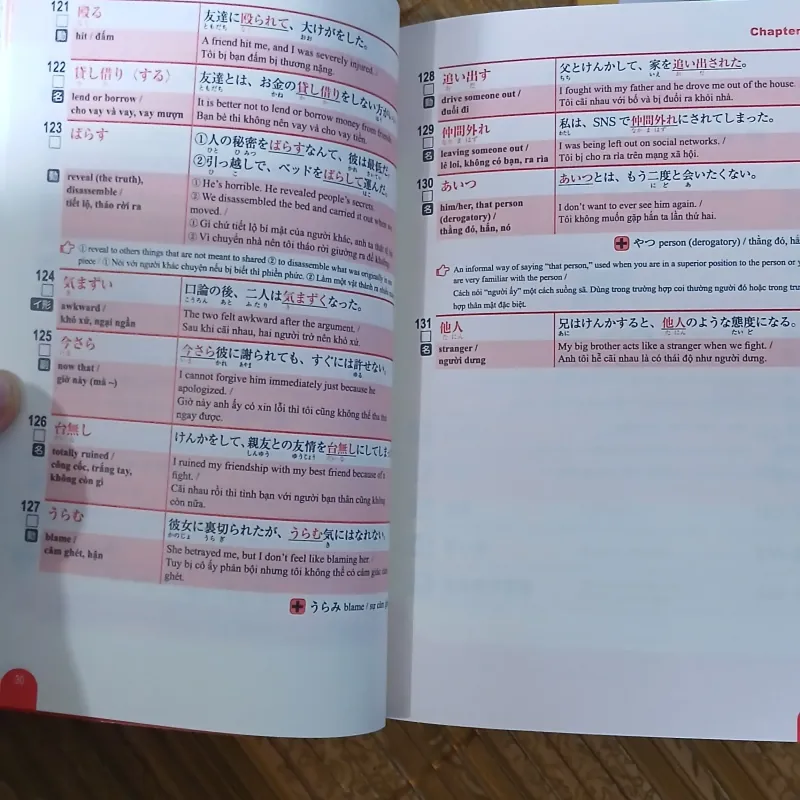 121 殴る
hit / đấm
友達に殴られて、大けがをした。
ともだち おお
A friend hit me, and I was severely injured. /
Tôi bị bạn đấm bị thương nặng.
122 貸し借り〈する〉
名 lend or borrow /
cho vay và vay, vay mượn
友達とは、お金の貸し借りをしない方が
ともだち かね
It is better not to lend or borrow money from friends.
Bạn bè thì không nên vay và cho vay tiền.
123 ばらす
動 reveal (the truth),
disassemble /
tiết lộ, tháo rời ra
①人の秘密をばらすなんて、彼は最低だ
ひと ひみつ かれ さいてい
②引っ越しで、ベッドをばらして運んだ。
ひ こ はこ
① He's horrible. He revealed people's secrets.
② We disassembled the bed and carried it out when we
moved. /
① Gỉ chứ tiết lộ bí mật của người khác, anh ta thật tồi
② Vì chuyển nhà nên tôi tháo rời giường ra để
① reveal to others things that are not meant to shared ② to disassemble what was originally in one
piece / ① Nói với người khác chuyện nếu bị biết thì phiền phức. ② Làm một vật thành
124 気まずい
イ形 awkward /
khó xử, ngại ngần
口論の後、二人は気まずくなった。
こうろん あと ふたり
The two felt awkward after the argument. /
Sau khi cãi nhau, hai người trở nên khó xử.
125 今さら
副 now that /
giờ này (mà ~)
今さら彼に謝られても、すぐには許せない。
かれ あやま ゆる
I cannot forgive him immediately just because he
apologized. /
Giờ này anh ấy có xin lỗi thì tôi cũng không thể tha thứ
ngay được.
126 台無し
名 totally ruined /
công cốc, trắng tay,
không còn gì
けんかをして、親友との友情を台無しにしてしまっ
しんゆう ゆうじょう
I ruined my friendship with my best friend because of a
fight. /
Cãi nhau rồi thì tình bạn với người bạn thân cũng không
còn nữa.
127 うらむ
動 blame /
căm ghét, hận
彼女に裏切られたが、うらむ気にはなれない。
かのじょ うらぎ き
She betrayed me, but I don't feel like blaming her. /
Tuy bị cô ấy phản bội nhưng tôi không thể có cảm giác căm
ghét.
うらみ blame / sự căm
30
Chapter
128 追い出す
動 drive someone out /
đuổi đi
父とけんかして、家を追い出された。
ちち いえ
I fought with my father and he drove me out of the house.
Tôi cãi nhau với bố và bị đuổi ra khỏi nhà.
129 仲間外れ
名 leaving someone out /
lẻ loi, không có bạn, ra rìa
私は、SNSで仲間外れにされてしまった。
わたし なかまはず
I was being left out on social networks. /
Tôi bị cho ra rìa trên mạng xã hội.
130 あいつ
名 him/her, that person
(derogatory) /
thằng đó, hắn, nó
あいつとは、もう二度と会いたくない。
にど あ
I don't want to ever see him again. /
Tôi không muốn gặp hắn ta lần thứ hai.
やつ person (derogatory) / thằng đó, hắ
An informal way of saying "that person," used when you are in a superior position to the person or y
are very familiar with the person /
Cách nói "người ấy" một cách suồng sã. Dùng trong trường hợp coi thường người đó hoặc trong trư
hợp thân mật đặc biệt.
131 他人
名 stranger /
người dưng
兄はけんかすると、他人のような態度になる。
あに たにん たいど
My big brother acts like a stranger when we fight. /
Anh tôi hễ cãi nhau là có thái độ như người dưng.